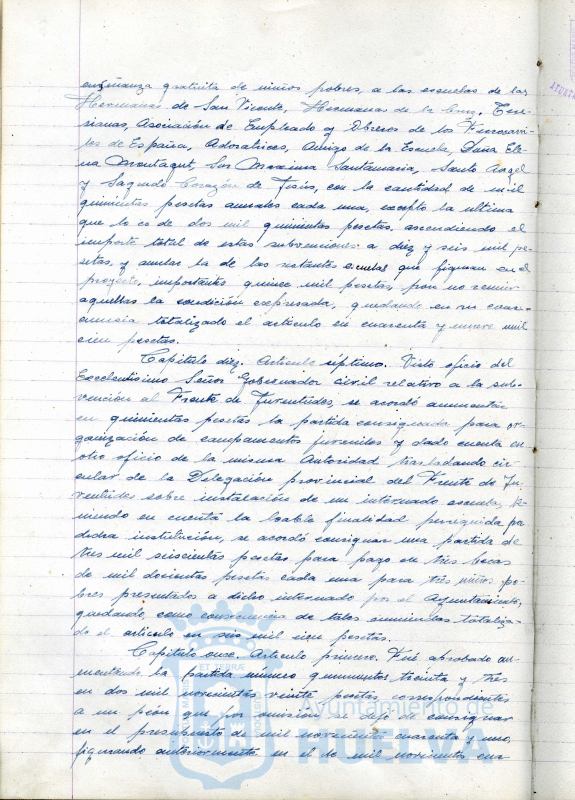 enseñanza gratuita de niños pobres, a las escuelas de las
Hermanas de San Vicente, Hermanas de la Cruz, Tere-
sianas, Asociación de Empleado y Obreros de los Ferrocarri-
les de España, Adoratrices, Amigo de la Escuela, Dina Ele
na Montagut, Sor Maxima Santamaria, Santo Angel
y Sagrado Corazón de Jesús, con la cantidad de mil
quinientas pesetas anuales cada una, excepto la ultima
que lo es de dos mil quinientas pesetas, ascendiendo el
importe total de estas subvenciones a diez y seis mil pe-
setas, y anular la de las restantes escuelas que figuran en el
proyecto, importantes quince mil pesetas, por no reunir
aquellas la condición expresada, quedando en su conse-
cuencia totalizado el artículo en cuarenta y nueve mil
cien pesetas.
Capitulo diez. Articulo séptimo. Visto oficio del
Excelentísimo Señor Gobernador civil relativo a la sub-
vención al Frente de Juventudes, se acordó aumentar
en quinientas pesetas la partida consignada para or-
ganización de campamentos juveniles y dado cuenta en
otro oficio de la misma Autoridad trasladando cir-
cular de la Delegación provincial del Frente de Ju-
ventudes sobre instalación de un internado escuela, te-
niendo en cuenta la loable finalidad perseguida por
dicha institución, se acordó consignar una partida de
tres mil seiscientas pesetas para pago de tres becas
de mil doscientas pesetas cada una para tres niños po-
bres presentados a dicho internado por el Ayuntamiento,
quedando, como consecuencia de tales aumentos totaliza-
do el artículo en seis mil cien pesetas.
Capitulo once. Articulo primero. Fué aprobado au-
mentando la partida número quinientos treinta y tres
en dos mil novecientas veinte pesetas correspondientes
a un peón que por omisión se dejó de consignar
en el presupuesto de mil novecientos cuarenta y uno,
figurando anteriormente en el de mil novecientos cua
Ayuntamiento de
HUELVA